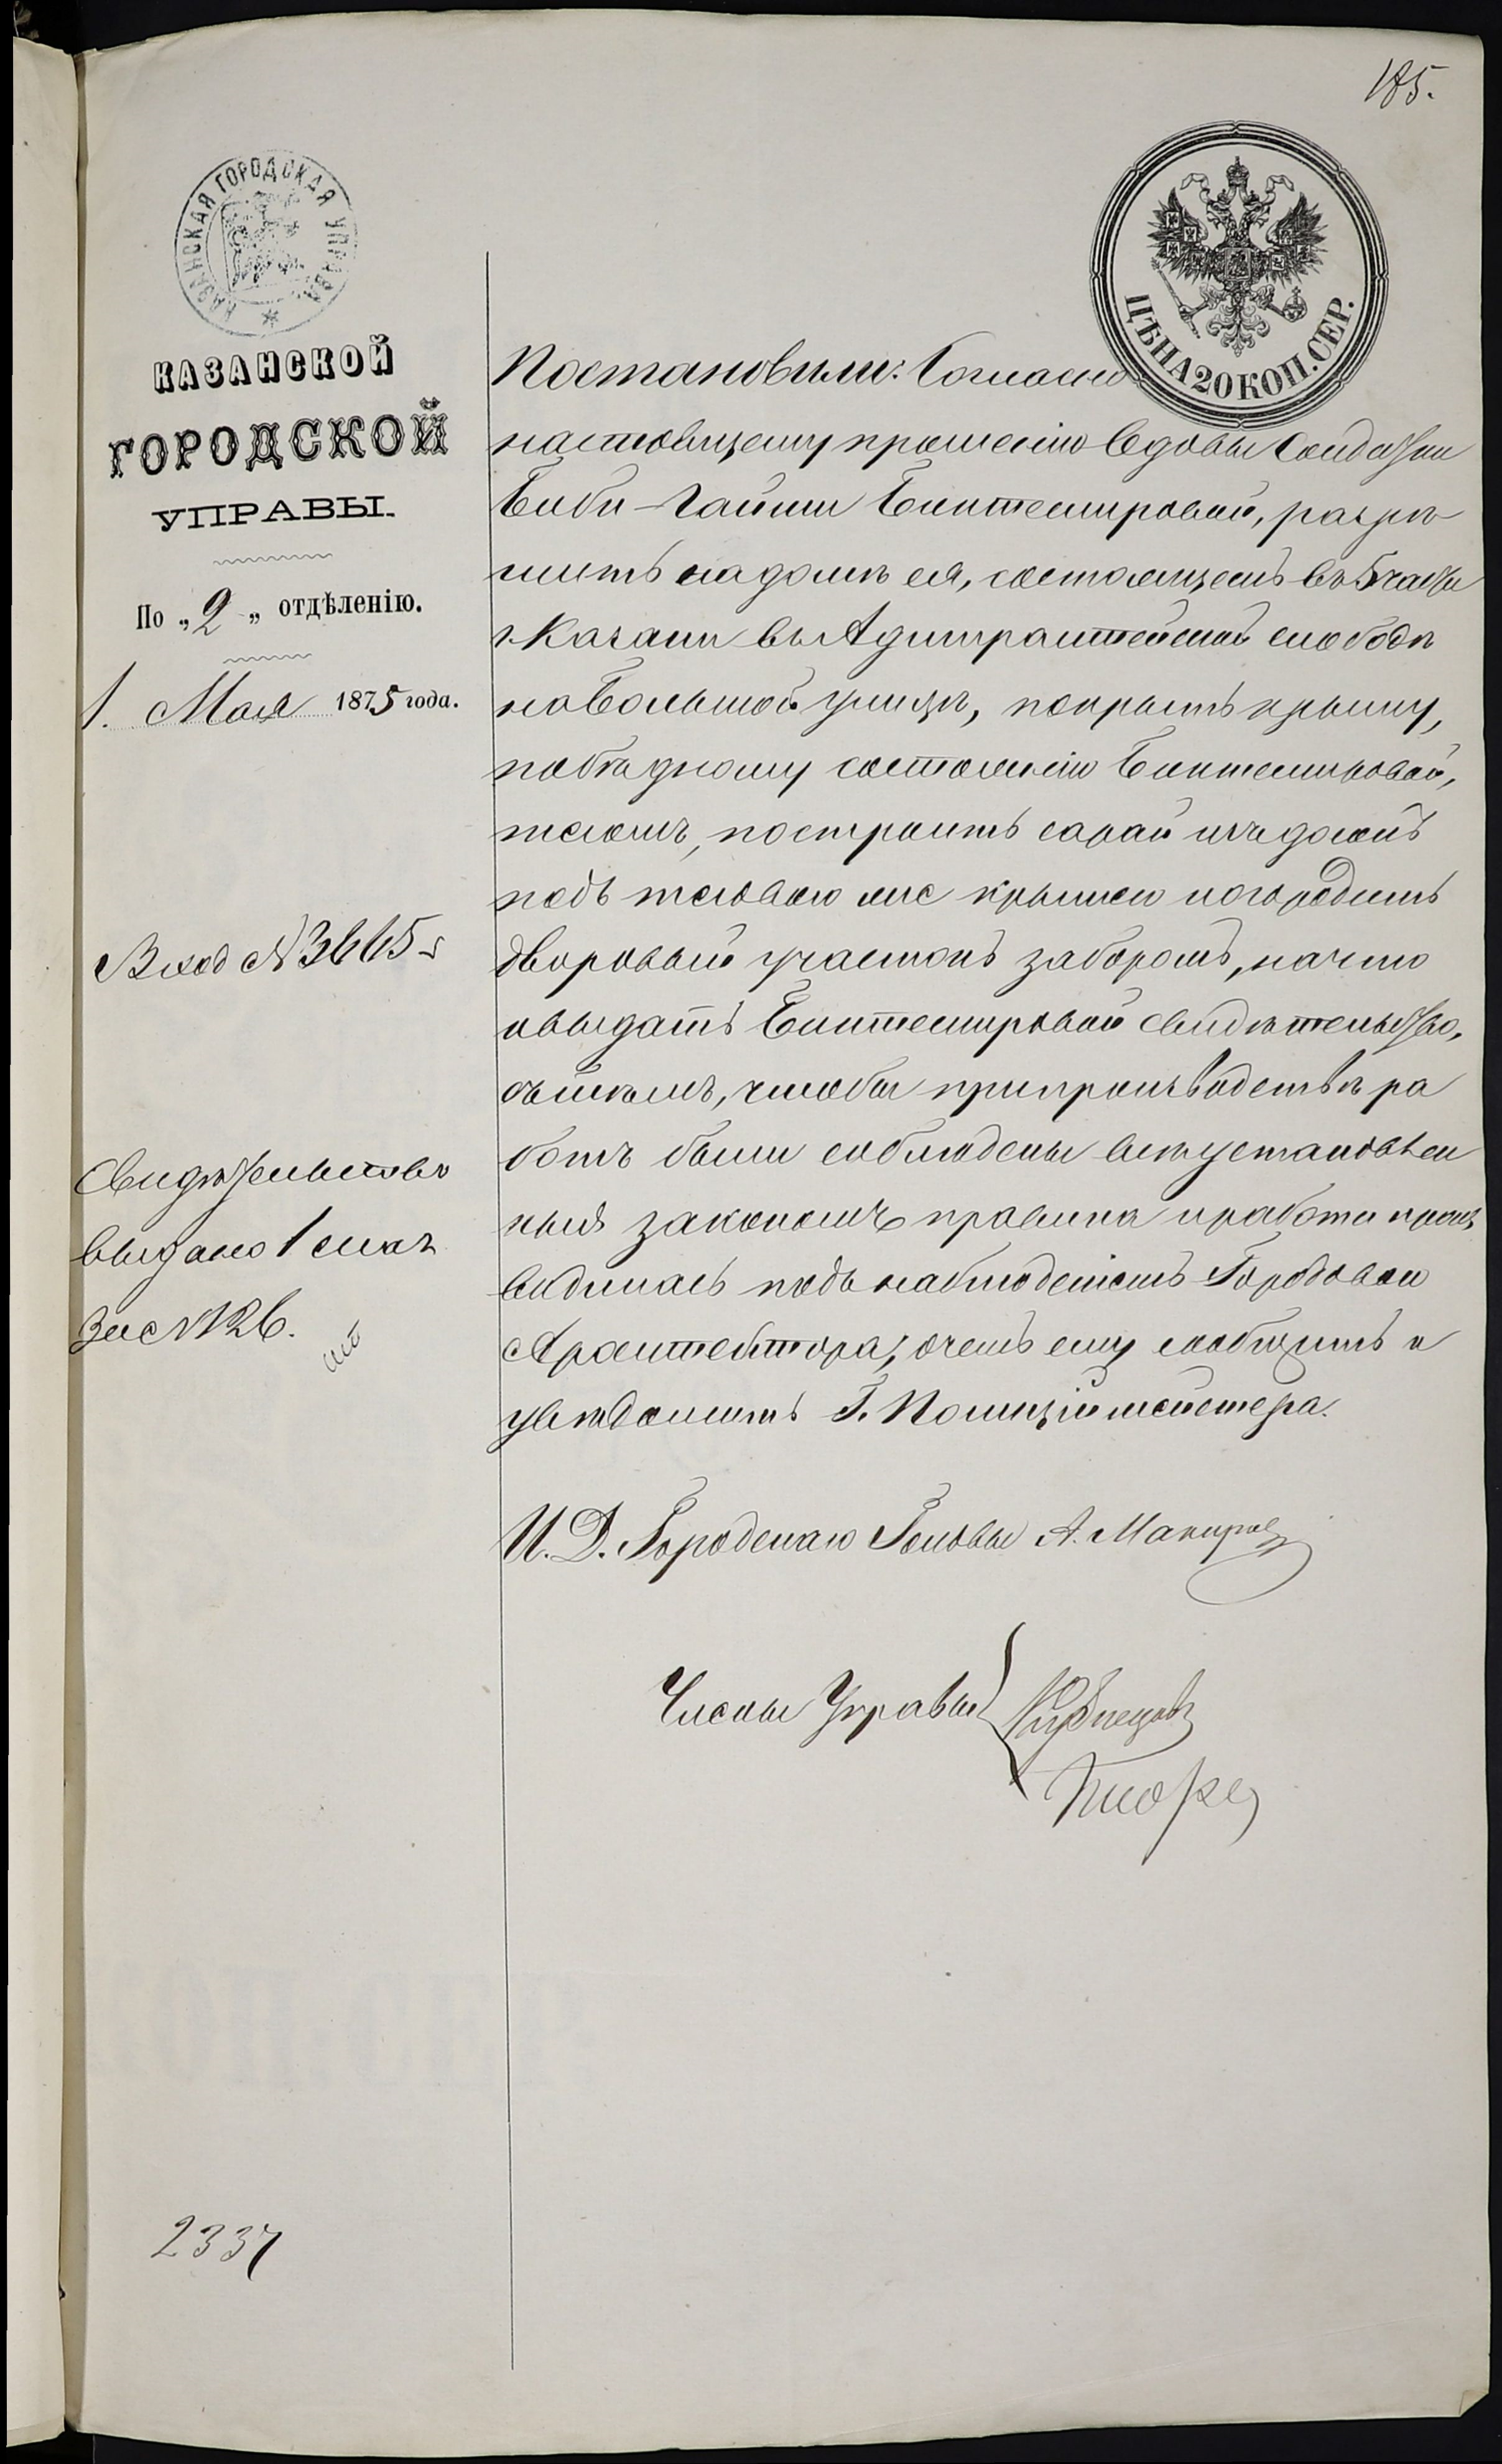 185.
КАЗАНСКАЯ ГОРОДСКАЯ УПРАВА
ЦѢНА 20 КОП. СЕР.
КАЗАНСКОЙ
ГОРОДСКОЙ
УПРАВЫ.
По „2„ отдѣленію.
1. Мая 1875 года.
Вход №3665
Свидѣтельство
выдано 1 мая
за №126.
2337
Постановили: Согласно
настоящему прошенію вдовы солдатки
Биби-Гайши Биктемировой, разрѣ
шить на домѣ ея, состоящемъ въ 5 части
г. Казани въ Адмиралтейской слободѣ
на Большой улицѣ, покрыть крышу,
по бѣдному состоянію Биктемировой,
тесомъ, построить сарай изъ досокъ
подъ тесовою же крышею и огородить
дворовый участокъ заборомъ, на что
и выдать Биктемировой свидѣтельство,
съ тѣмъ, чтобы при производствѣ ра
ботъ были соблюдены всѣ установлен
ныя закономъ правила и работы произ
водились подъ наблюденіемъ Городоваго
Архитектора, о чемъ ему сообщить и
увѣдомить Г. Полиціймейстера.
И. Д. Городскаго Головы А.
Члены Управы Кузнецовъ